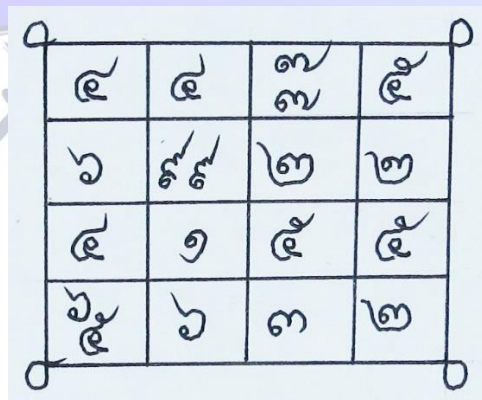 ๔ ๔ ๗ ๗ ๕
๖ ๙ ๙ ๒ ๒
๔ ๑ ๕ ๕
๖ ๕ ๖ ๓ ๒